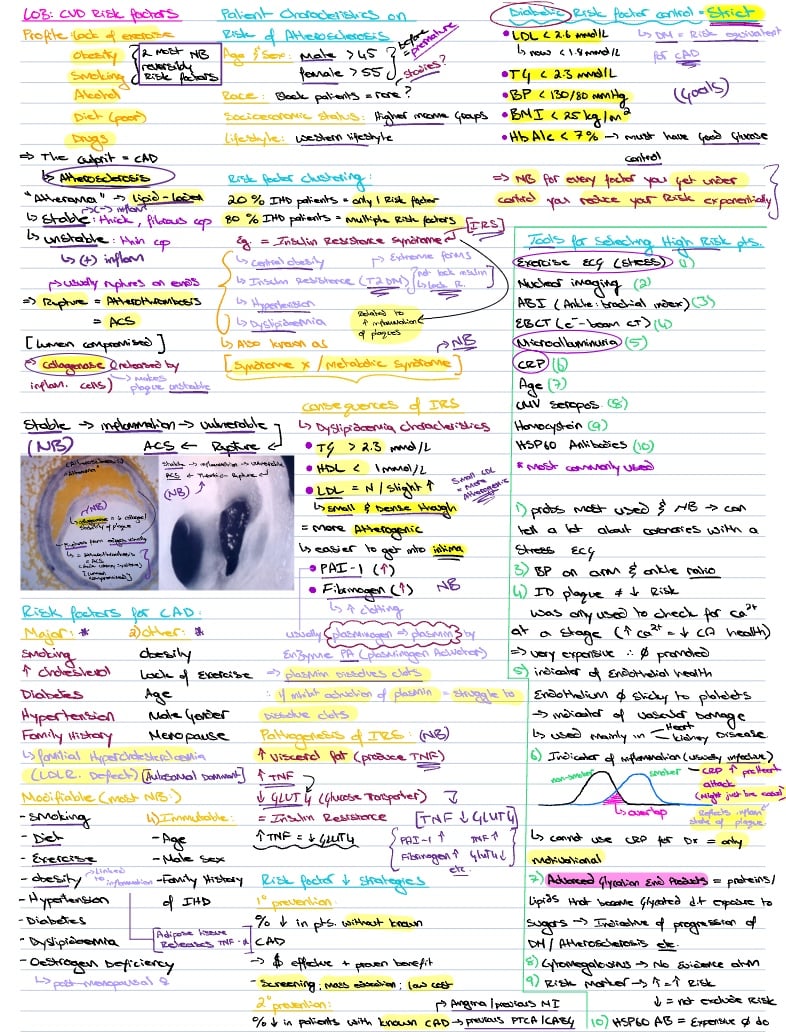 L03: CVD Risk factors
Profile lack of exercise
Obesity
Smoking
2 most NB
reversibly
Risk factors
Alcohol
Diet (poor)
Drugs
⇒ The culprit = CAD
↳ Atherosclerosis
"Atheroma" → lipid-laden
↳ Stable: thick, fibrous cap
(-) inflam
↳ unstable: thin cap
↳ (+) inflam
↳ usually ruptures on ends
⇒ Rupture = Atherothrombosis
= ACS
[lumen compromised]
⇒ Collagenase (released by
inflam. cells)
→ makes
plaque unstable
Stable → inflammation → vulnerable
(NB) ACS ← Rupture ↵
(Atherosclerosis)
"Atheroma"
(NB)
Stable → inflammation → vulnerable
ACS ← Thrombi ← Rupture ↵
(NB)
Risk factors for CAD:
Major: *
Smoking
↑ cholesterol
Diabetes
Hypertension
Family History
↳ familial Hypercholesterolaemia
(LDLR. Deflect) [Autosomal Dominant]
2) Other: *
Obesity
Lack of Exercise
Age
Male Gender
Menopause
Modifiable (most NB:)
- Smoking
- Diet
- Exercise
- obesity
→ linked
to inflammation
- Hypertension
- Diabetes
- Dyslipidaemia
- Oestrogen Deficiency
↳ post-menopausal ♀
4) Immutable:
- Age
- Male Sex
- Family History
of IHD
Adipose tissue
Releases TNF-α
Patient Characteristics on
Risk of Atherosclerosis
Age & Sex: Male > 45
female > 55
before =
premature
Race: Black patients = rare?
studies?
Socioeconomic status: Higher income groups
Lifestyle: western lifestyle
Risk factor clustering:
20 % IHD patients = only 1 Risk factor
80 % IHD patients = multiple Risk factors
[IRS]
Eg. = Insulin Resistance syndrome
↳ Central obesity
↳ Extreme forms
↳ Insulin Resistance (T2DM)
not lack insulin
↳ lack R.
↳ Hypertension
↳ Dyslipidaemia
Related to
↑ inflammation
of plaques
↳ Also known as
→ NB
[Syndrome x / Metabolic Syndrome]
Consequences of IRS
↳ Dyslipidaemia Characteristics
• TG > 2.3 mmol/L
• HDL < 1 mmol/L
• LDL = N / slight ↑
Small LDL
= More
Atherogenic
↳ small & dense though
= more Atherogenic
↳ easier to get into intima
• PAI-1 (↑)
• Fibrinogen (↑) NB
↳ ↑ clotting
usually (plasminogen ⇒ plasmin) by
Enzyme PA (plasminogen Activator)
⇒ plasmin dissolves clots
∴ if inhibit activation of plasmin = struggle to
dissolve clots
Pathogenesis of IRS: (NB)
↑ Visceral fat (produce TNF)
↑ TNF
↓ GLUT 4 (Glucose Transporter)
= Insulin Resistance
[TNF ↓ GLUT4]
↑ TNF = ↓ GLUT4
PAI-1 ↑ TNF ↑
Fibrinogen ↑ GLUT4 ↓
etc.
Risk factor ↓ strategies
1° prevention:
% ↓ in pts. without known
CAD
→ $ effective + proven benefit
- Screening, mass education, low cost
2° prevention:
→ Angina / previous MI
% ↓ in patients with known CAD → previous PTCA/CABG
Diabetic Risk factor control = Strict
• LDL < 2.6 mmol/L
↳ now < 1.8 mmol/L
↳ DM = Risk equivalent
for CAD
• TG < 2.3 mmol/L
• BP < 130/80 mmHg
(Goals)
• BMI < 25 kg/m²
• HbA1c < 7% → must have good glucose
control
⇒ NB for every factor you get under
control you reduce your Risk exponentially
Tools for Selecting High Risk pts.
Exercise ECG (stress) (1)
Nuclear imaging (2)
ABI (Ankle: brachial index) (3)
EBCT (e⁻-beam CT) (4)
Microalbuminuria (5)
CRP (6)
Age (7)
CMV seropos. (8)
Homocystein (9)
HSP60 Antibodies (10)
* most commonly used
1) probs most used & NB → can
tell a lot about coronaries with a
Stress ECG
3) BP on arm & ankle ratio
4) ID plaque ≠ ↓ Risk
was only used to check for Ca²⁺
at a stage (↑ Ca²⁺ = ↓ CA health)
⇒ very expensive ∴ ∅ promoted
5) indicator of Endothelial health
Endothelium ∅ sticky to platelets
→ indicator of vascular Damage
↳ used mainly in Heart
kidney Disease
6) Indicator of inflammation (usually infective)
non-smoker
smoker
→ CRP ↑ pre Heart
attack
(Might just be cause)
↳ overlap
Reflects inflam
state of plaque.
↳ cannot use CRP for Dx = only
motivational
7) Advanced Glycation End Products = proteins/
lipids that become glycated d.t exposure to
sugars → Indicative of progression of
DM / Atherosclerosis etc.
8) Cytomegalovirus → No Evidence atm
9) Risk Marker → ↑ = ↑ Risk
↓ = not exclude Risk
10) HSP60 AB = Expensive ∅ do